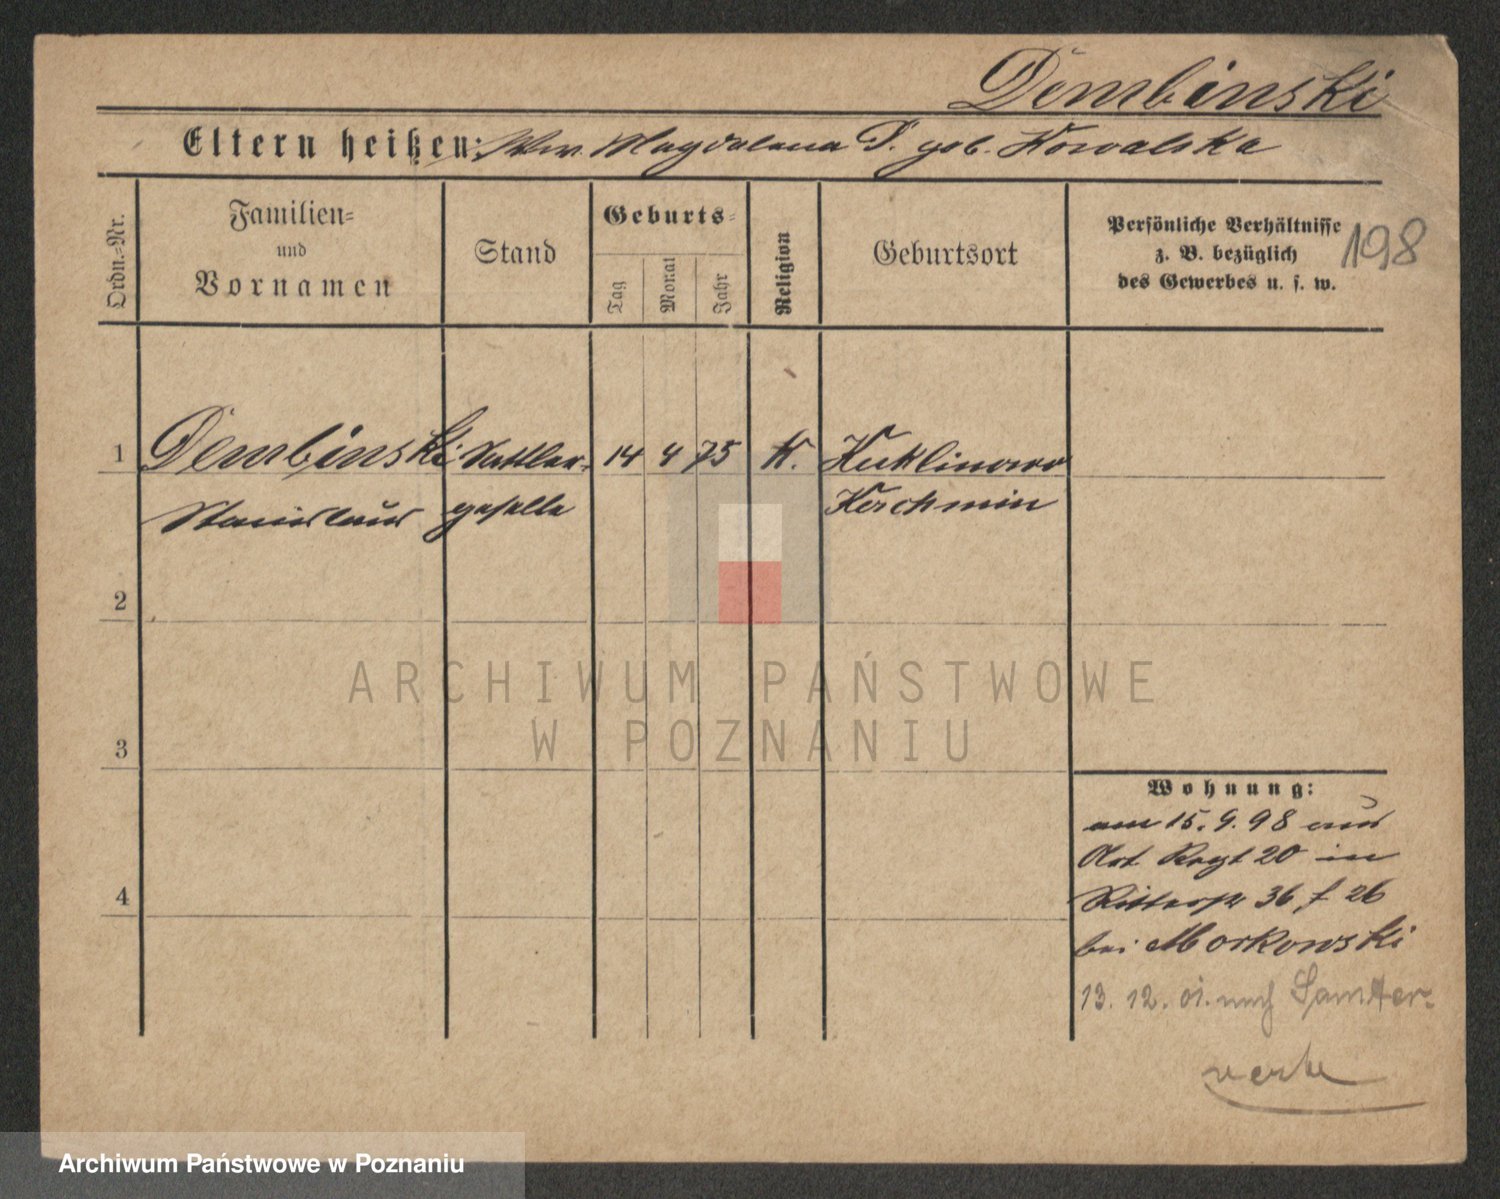 Dembinski
Eltern heißen: Wwe. Magdalena D. geb. Kowalska
Ordn.=Nr.
Familien=
und
Vornamen
Stand
Geburts=
Tag
Monat
Jahr
Religion
Geburtsort
Persönliche Verhältnisse
z. B. bezüglich
des Gewerbes u. s. w.
198
1 Dembinski Sattler- 14 4 75 K. Kuklinowo
Stanislaus geselle Koschmin
2
3
4
ARCHIWUM PAŃSTWOWE
W POZNANIU
Wohnung:
am 15. 9. 98 aus
Art. Regt 20 in
Ritterstr 36, f 26
bei Morkowski
13. 12. 01. nach Samter
Archiwum Państwowe w Poznaniu